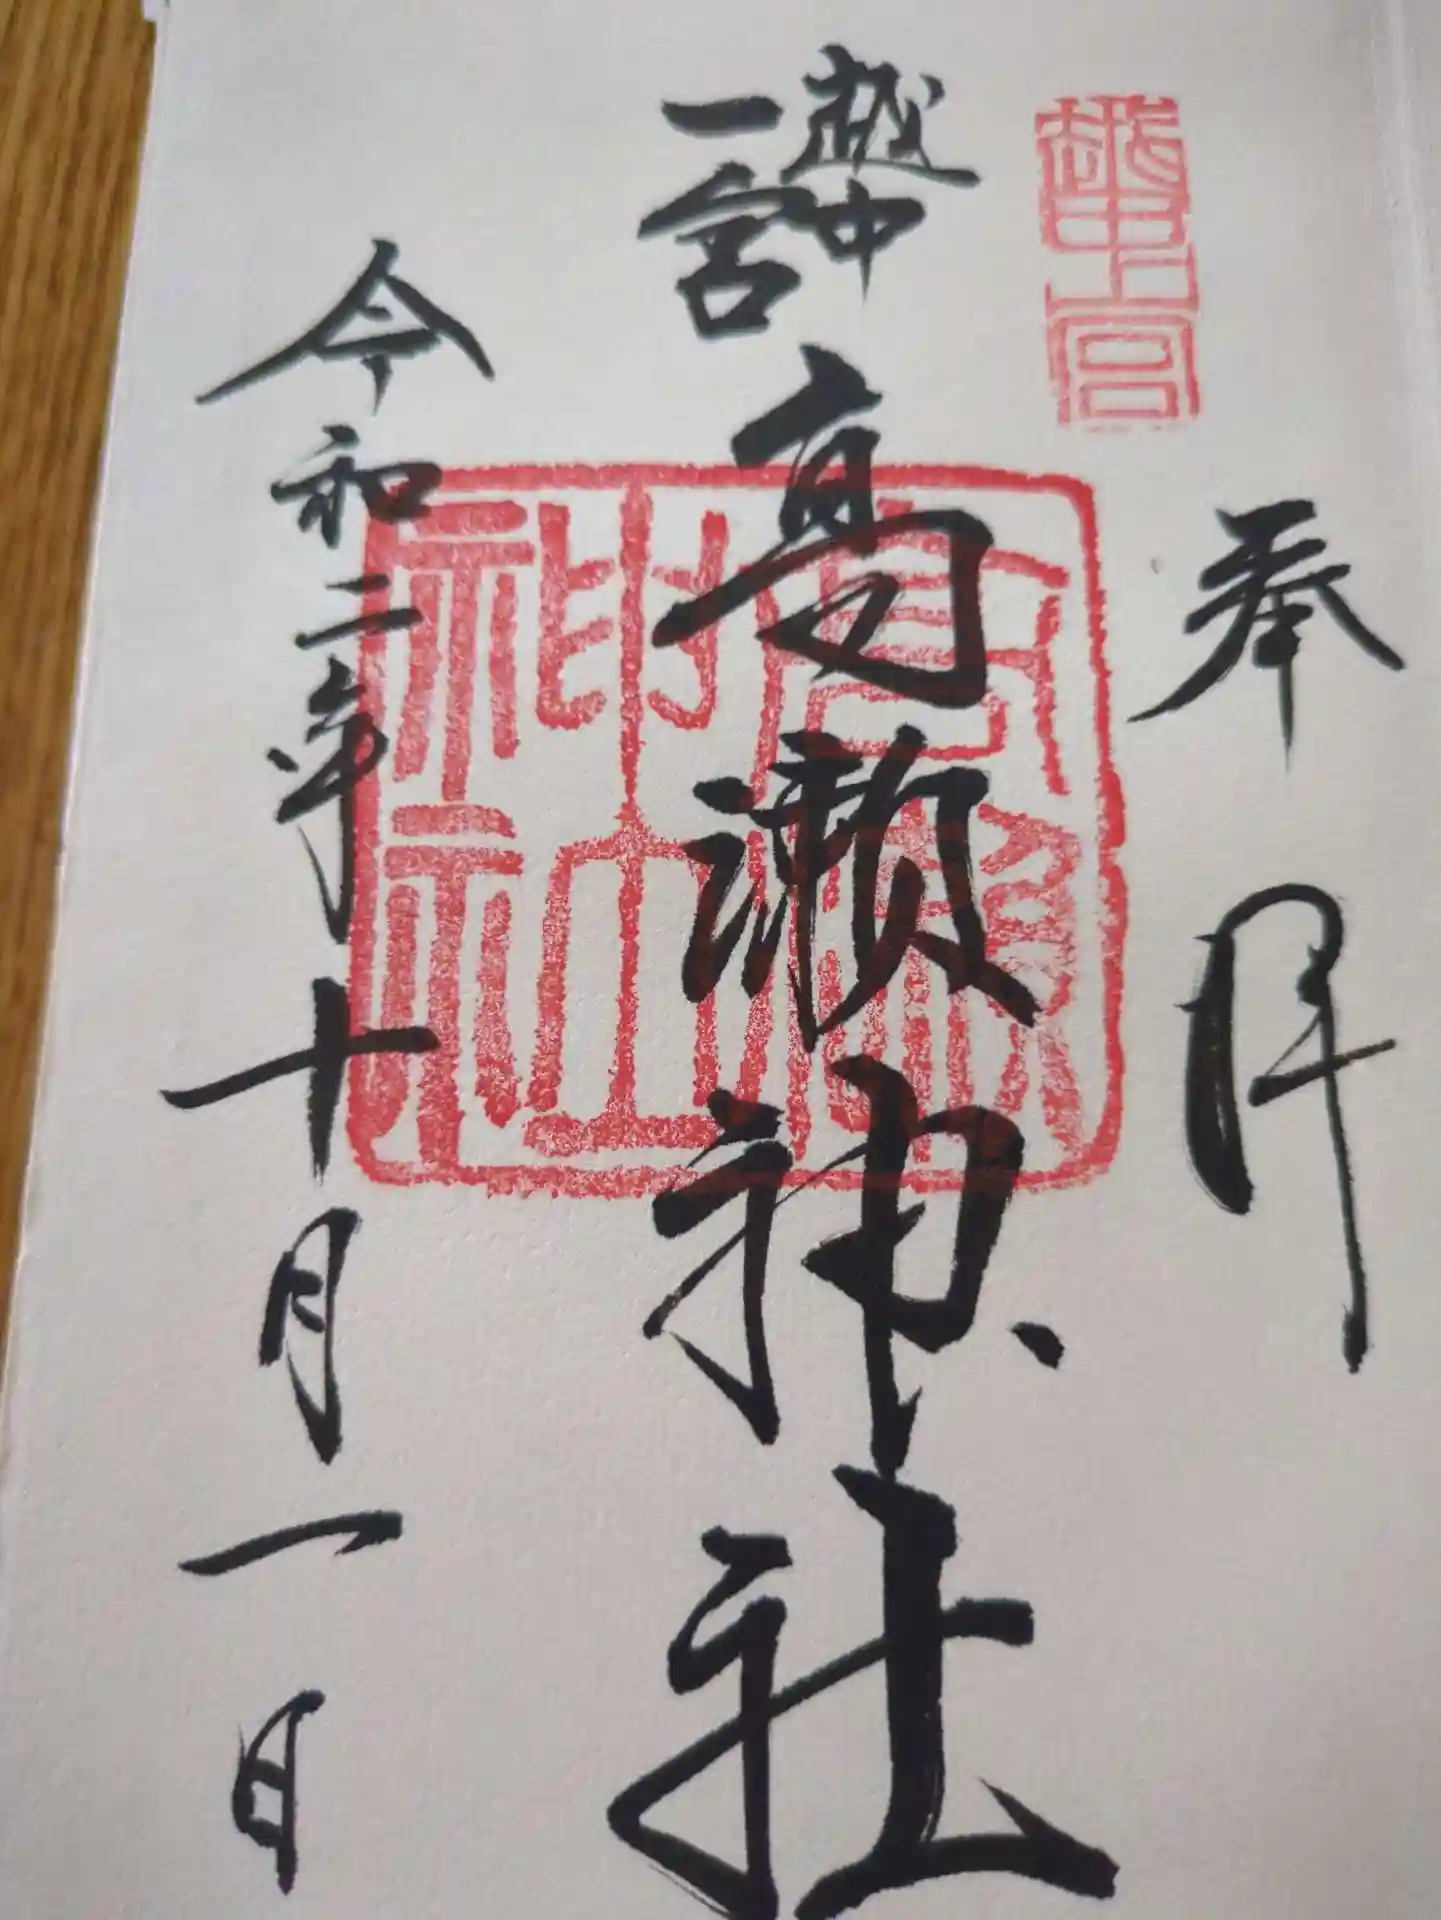 奉拝
越中一宮
越中
一宮
高瀬神社
高瀬神社
令和二年十月一日